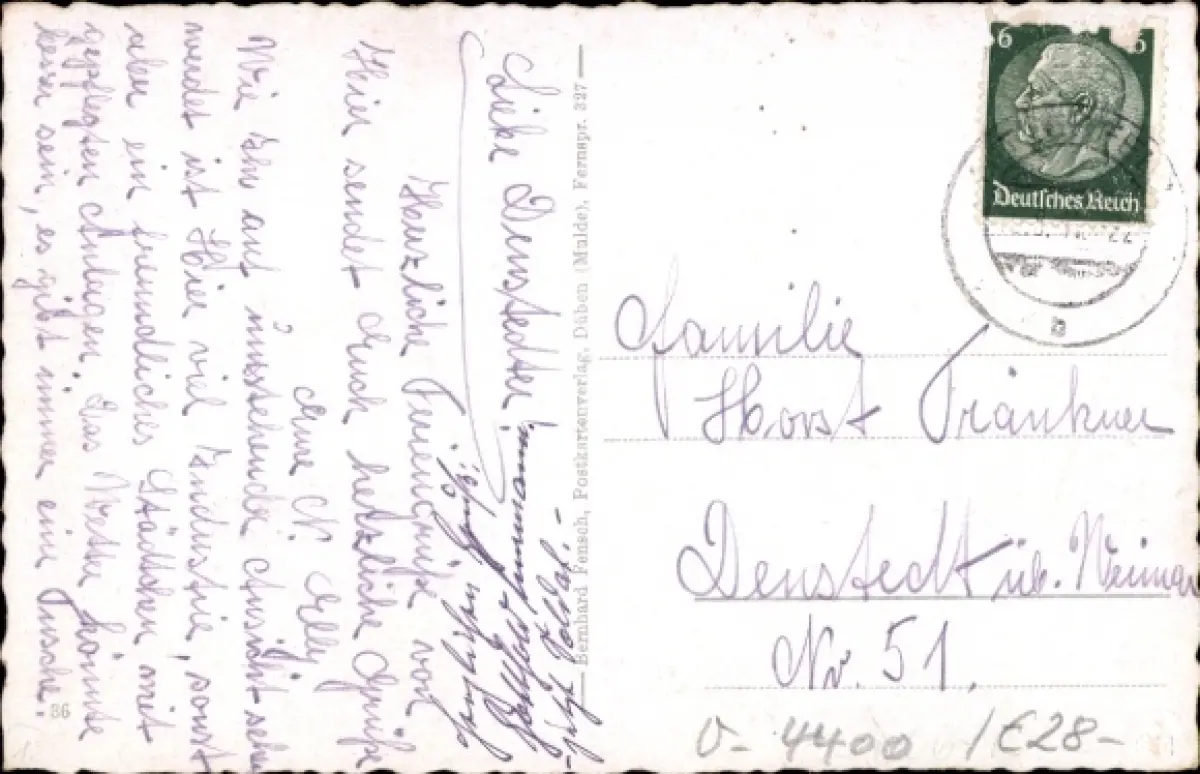 Liebe Denstedter!
Herzliche Feriengrüße von
Hier sendet Euch herzliche Grüße
Eure N. Elly
Wie Ihr aus umstehender Ansicht sehen
werdet ist Hier viel Industrie, sonst
aber ein freundliches Städtchen mit
gepflegten Anlagen. Das Wetter könnte
besser sein, es gibt immer eine Husche.
36
Bernhard Fensch, Postkartenverlag, Düben (Mulde), Fernspr. 327
6 6
Deutsches Reich
a
Familie
Horst Tränkner
Denstedt üb. Weimar
Nr. 51.
V- 4400 /€28-